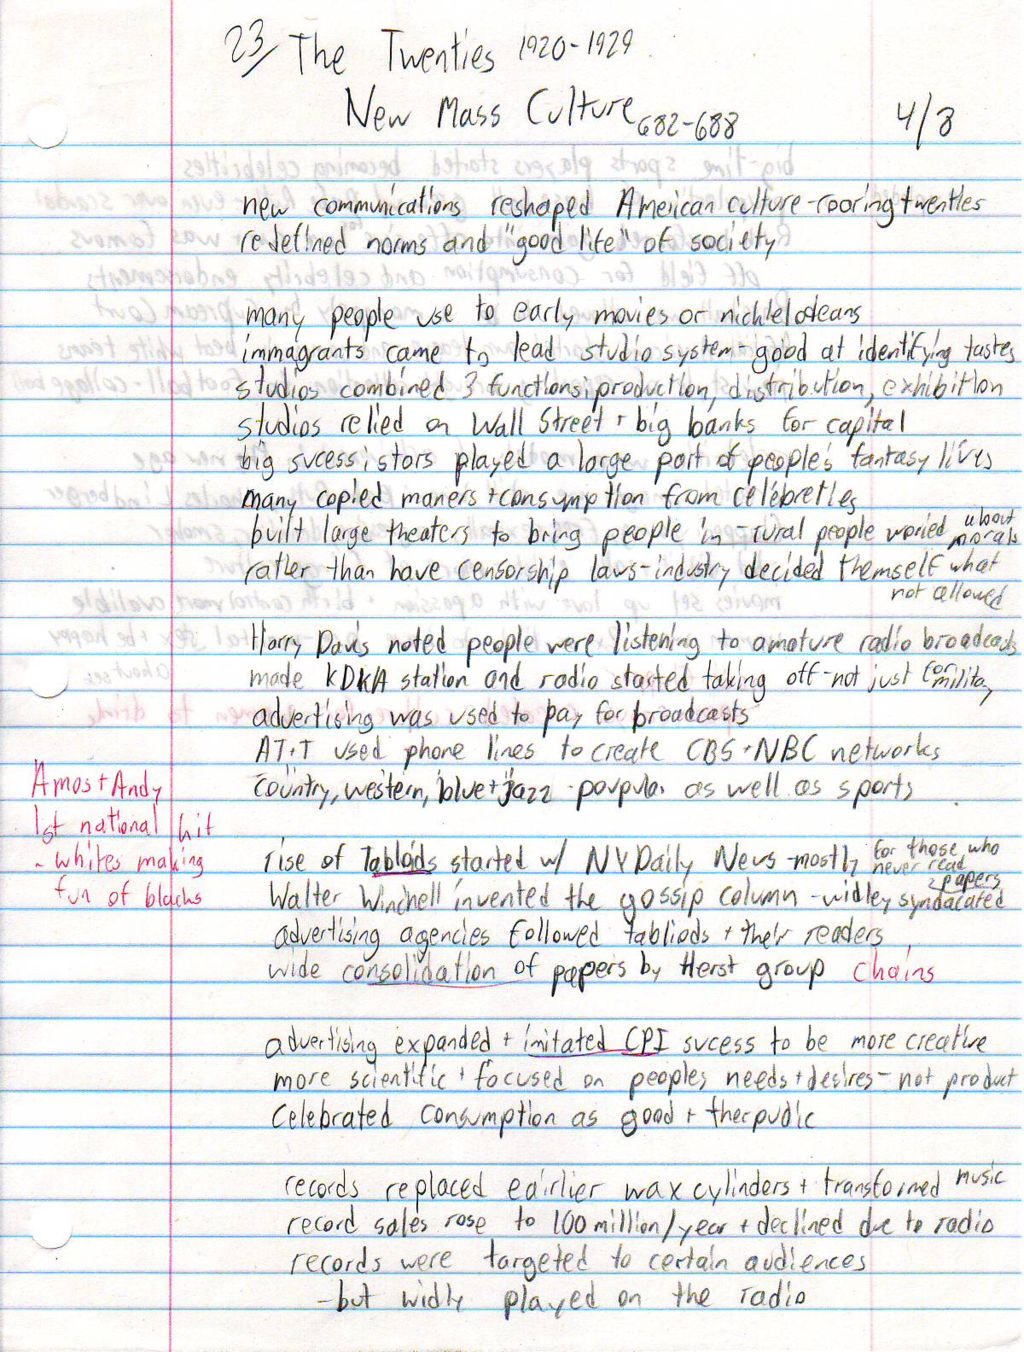 23/ The Twenties 1920-1929
New Mass Culture 682-688
4/8
new communications reshaped American culture-rooring twenties
redefined norms and "good life" of society
many people use to early movies or nichlelodeans
immagrants came to lead studio system-good at identifying tastes
studios combined 3 functions: production, distribution, exhibition
studios relied on Wall Street + big banks for capital
big sucess; stars played a large part of people's fantasy lives
many copied maners + consumption from celebreties
built large theaters to bring people in - rural people woried about morals
rather than have censorship laws-industry decided themself what
not allowed
Harry Davis noted people were listening to amature radio broadcasts
made KDKA station and radio started taking off-not just for militay
advertising was used to pay for broadcasts
AT+T used phone lines to create CBS + NBC networks
country, western, blue + jazz - poupular as well as sports
Amos + Andy
1st national hit
- whites making
fun of blacks
rise of Tabloids started w/ NY Daily News - mostly for those who
never read
papers
Walter Winchell invented the gossip column - widley syndacated
advertising agencies followed tabliods + their readers
wide consolidation of papers by Herst group chains
advertising expanded + imitated CPI sucess to be more creative
more scientific + focused on peoples needs + desires - not product
Celebrated consumption as good + therpudic
records replaced eairlier wax cylinders + transformed music
record sales rose to 100 million/year + declined due to radio
records were targeted to certain audiences
-but widly played on the radio